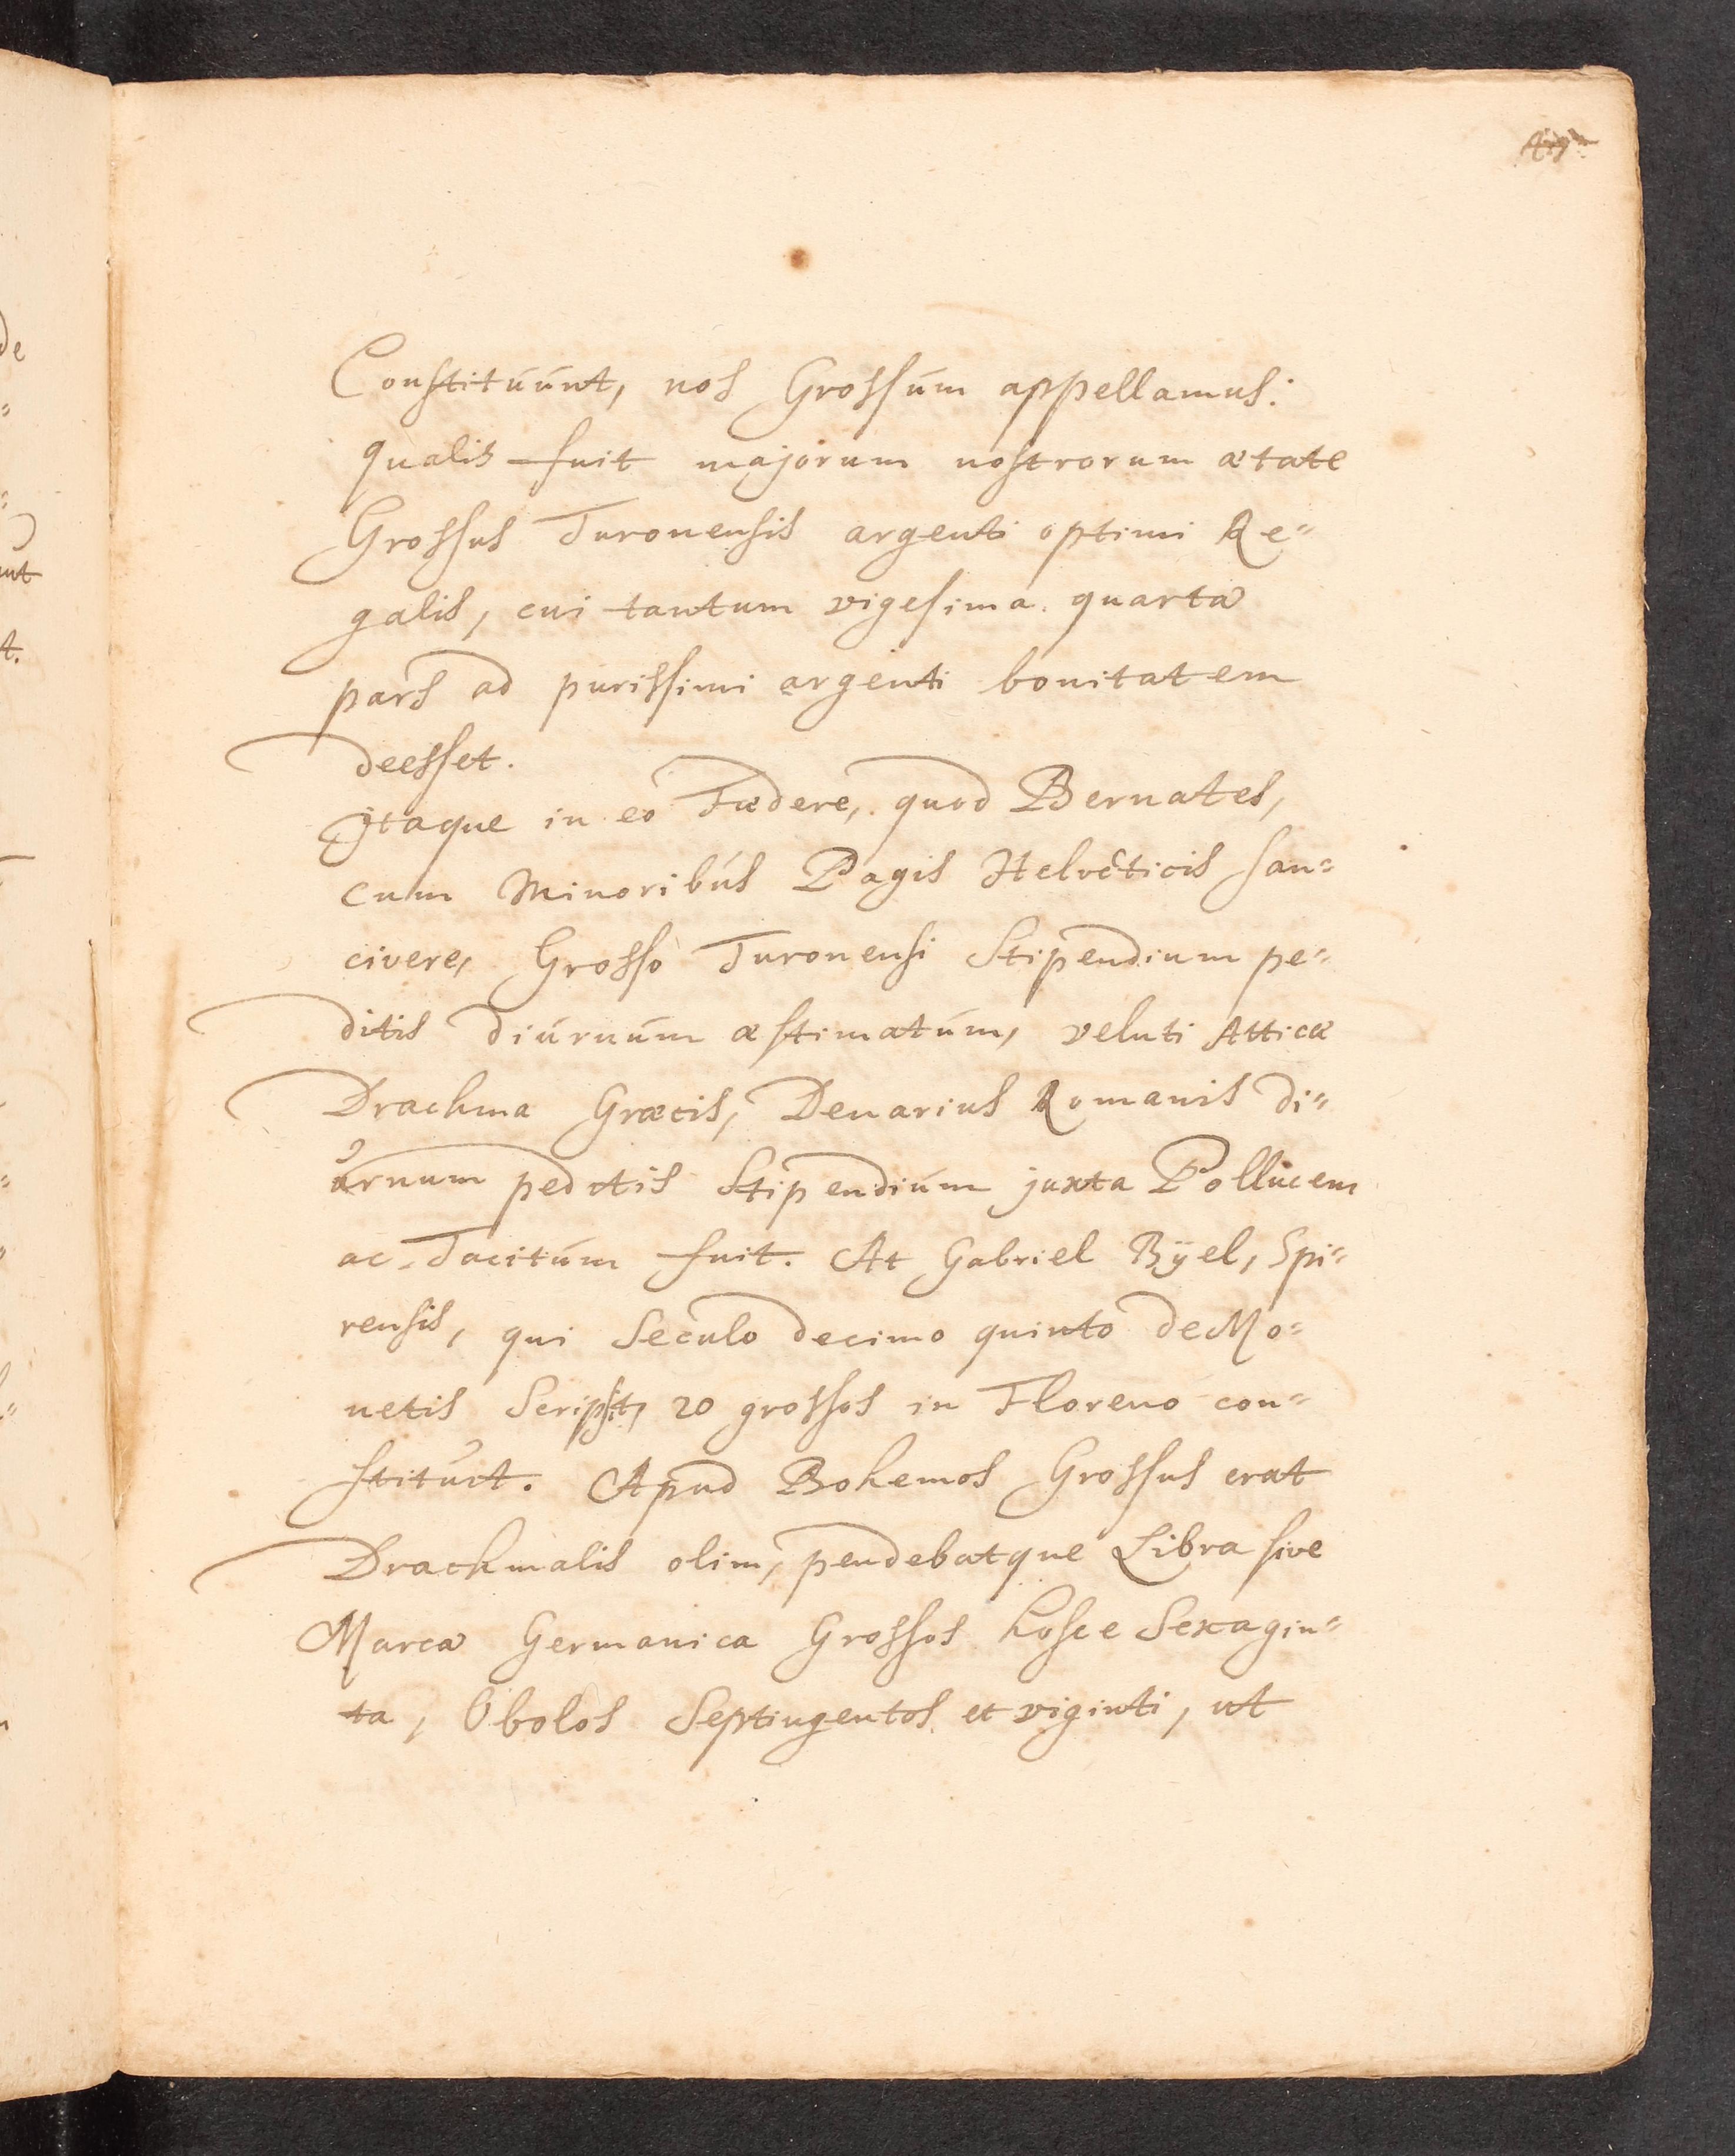 Constituunt, nos Grossum appellamus:
qualis fuit majorum nostrorum ætate
Grossus Turonensis argenti optimi Re=
galis, cui tantum vigesima quarta
pars ad purissimi argenti bonitatem
deesset.
Jtaque in eo Fœdere, quod Bernates,
cum Minoribus Pagis Helveticis san=
civere, Grosso Turonensi Stipendium pe=
ditis diurnum æstimatum, veluti Attica
Drachma Græcis, Denarius Romanis di=
urnum peditis Stipendium juxta Pollucem
ac Tacitum fuit. At Gabriel Byel, Spi=
rensis, qui Seculo decimo quinto de Mo=
netis Scripsit, 20 grossos in Floreno con=
stituit. Apud Bohemos Grossus erat
Drachmalis olim, pendebatque Libra sive
Marca Germanica Grossos hosce Sexagin=
ta, Obolos Septingentos et viginti, ut